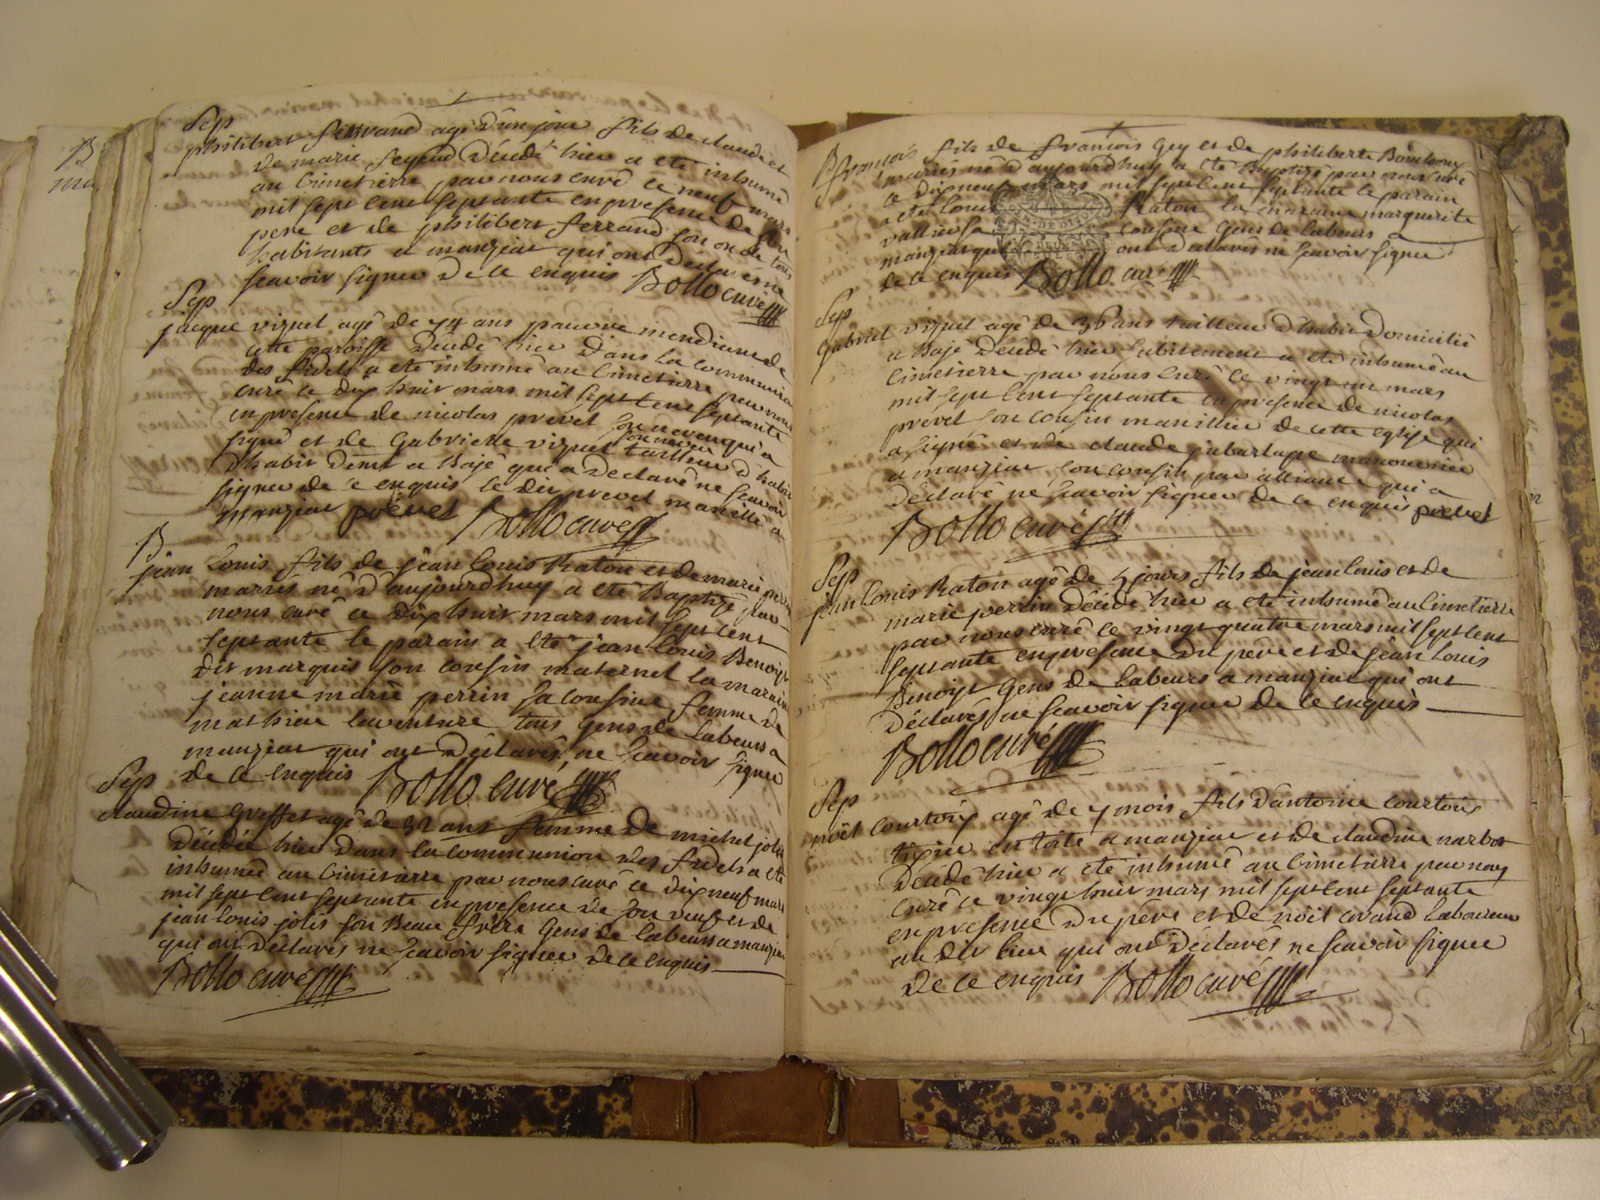 Sep
philibert ferrand agé d'un jour fils de claude et
de marie feyeud décédé hier a eté inhumé
au cimetierre par nous curé ce neuf mars
mil sept cent septante en presence de son
pere et de philibert ferrand son oncle tous
habitants a manziat qui ont déclaré ne
scavoir signer de ce enquis Bollo curé
Sep
jacque viguet agé de 74 ans pauvre mendiant de
cette paroisse décédé hier dans la communion
des fidels a eté inhumé au cimetierre par nous
curé ce dix huit mars mil sept cent septante
en presence de nicolas prevel son neveu qui a
signé et de Gabrielle viguet son neveu tailleur d'habit
d'habit demt a Bajé qui a declaré ne scavoir
signer de ce enquis le dit prevel manillier a
manziat prevel Bollo curé
B
jean Louis fils de jean Louis Raton et de marie perrin
mariés né d'aujourdhuy a eté Baptizé par
nous curé ce dix huit mars mil sept cent
septante le parain a eté jean Louis Benoist
dit marquis son cousin maternel la maraine
jeanne marie perrin sa cousine femme de
mathieu laventure tous Gens de Labeurs a
manziat qui ont déclarés ne scavoir signer
de ce enquis Bollo curé
Sep
claudine Greffet agé de 32 ans femme de michel joli
décédée hier dans la communion des fidels a eté
inhumée au cimetierre par nous curé ce dix neuf mars
mil sept cent septante en presence de son veuf et de
jean Louis jolis son Beau frère Gens de labeurs a manziat
qui ont déclarés ne scavoir signer de ce enquis
Bollo curé
B françois fils de françois Guy et de philiberte
mariés né d'aujourdhuy a eté Baptizé par nous curé
ce dix neuf mars mil sept cent septante le parain
a eté Louis Raton la maraine marguerite
sa cousine Gens de labeurs a
manziat qui ont déclarés ne scavoir signer
de ce enquis Bollo curé
Sep
Gabriel viguet agé de 36 ans tailleur d'habit Domicilié
a Bajé décédé hier subitement a eté inhumé au
cimetierre par nous curé ce vingt un mars
mil sept cent septante en presence de nicolas
prevel son cousin manillier de cette eglise qui
a signé et de claude manouvrier
a manziat son cousin par alliance qui a
déclaré ne scavoir signer de ce enquis prevel
Bollo curé
Sep
jean Louis Raton agé de 5 jours fils de jean Louis et de
marie perrin décédé hier a eté inhumé au cimetierre
par nous curé ce vingt quatre mars mil sept cent
septante en presence du père et de jean Louis
Benoist Gens de Labeurs a manziat qui ont
déclarés ne scavoir signer de ce enquis
Bollo curé
Sep
noël Courtois agé de 7 mois fils d'antoine Courtois
tixier en toile a manziat et de claudine
décédé hier a eté inhumé au cimetierre par nous
curé ce vingt huit mars mil sept cent septante
en presence du père et de noël Laboureur
au dit lieu qui ont déclarés ne scavoir signer
de ce enquis Bollo curé